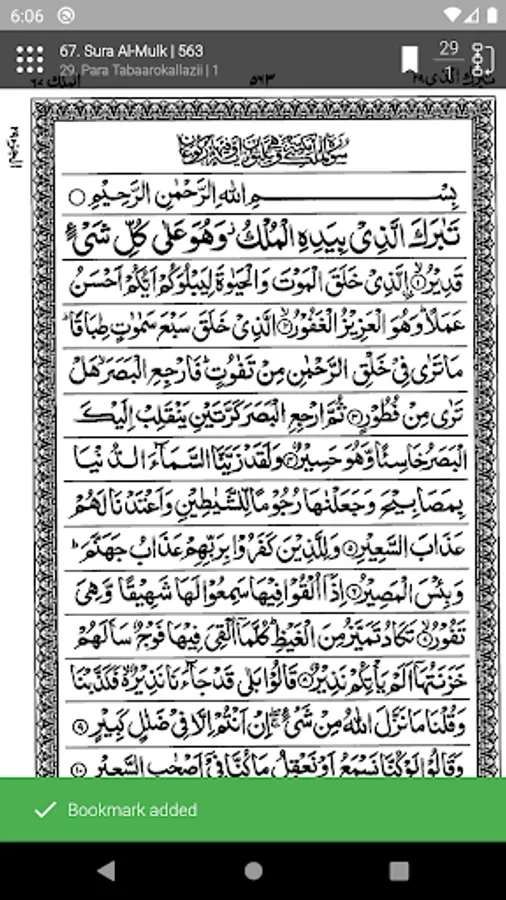 6:06
67. Sura Al-Mulk | 563
29. Para Tabaarokallazii | 1
29
1
الملك ٦٧
٥٦٣
تبرك الذی ٢٩
بِسْمِ اللهِ الرَّحْمٰنِ الرَّحِيْمِ
تَبٰرَكَ الَّذِىْ بِيَدِهِ الْمُلْكُ وَهُوَ عَلٰى كُلِّ شَىْءٍ
قَدِيْرُۨ ۝١ الَّذِىْ خَلَقَ الْمَوْتَ وَالْحَيٰوةَ لِيَبْلُوَكُمْ اَيُّكُمْ اَحْسَنُ
عَمَلًا ؕ وَهُوَ الْعَزِيْزُ الْغَفُوْرُ ۝٢ الَّذِىْ خَلَقَ سَبْعَ سَمٰوٰتٍ طِبَاقًا ؕ
مَا تَرٰى فِىْ خَلْقِ الرَّحْمٰنِ مِنْ تَفٰوُتٍ ؕ فَارْجِعِ الْبَصَرَ ۙ هَلْ
تَرٰى مِنْ فُطُوْرٍ ۝٣ ثُمَّ ارْجِعِ الْبَصَرَ كَرَّتَيْنِ يَنْقَلِبْ اِلَيْكَ
الْبَصَرُ خَاسِئًا وَّهُوَ حَسِيْرٌ ۝٤ وَلَقَدْ زَيَّنَّا السَّمَآءَ الدُّنْيَا
بِمَصَابِيْحَ وَجَعَلْنٰهَا رُجُوْمًا لِّلشَّيٰطِيْنِ وَاَعْتَدْنَا لَهُمْ
عَذَابَ السَّعِيْرِ ۝٥ وَلِلَّذِيْنَ كَفَرُوْا بِرَبِّهِمْ عَذَابُ جَهَنَّمَ ؕ
وَبِئْسَ الْمَصِيْرُ ۝٦ اِذَآ اُلْقُوْا فِيْهَا سَمِعُوْا لَهَا شَهِيْقًا وَّهِىَ
تَفُوْرُ ۝٧ تَكَادُ تَمَيَّزُ مِنَ الْغَيْظِ ؕ كُلَّمَآ اُلْقِىَ فِيْهَا فَوْجٌ سَاَلَهُمْ
خَزَنَتُهَآ اَلَمْ يَاْتِكُمْ نَذِيْرٌ ۝٨ قَالُوْا بَلٰى قَدْ جَآءَنَا نَذِيْرٌ ۙ فَكَذَّبْنَا
وَقُلْنَا مَا نَزَّلَ اللهُ مِنْ شَىْءٍ ۚ اِنْ اَنْتُمْ اِلَّا فِىْ ضَلٰلٍ كَبِيْرٍ ۝٩
وَقَالُوْا لَوْ كُنَّا نَسْمَعُ اَوْ نَعْقِلُ مَا كُنَّا فِىْٓ اَصْحٰبِ السَّعِيْرِ ۝١٠
Bookmark added